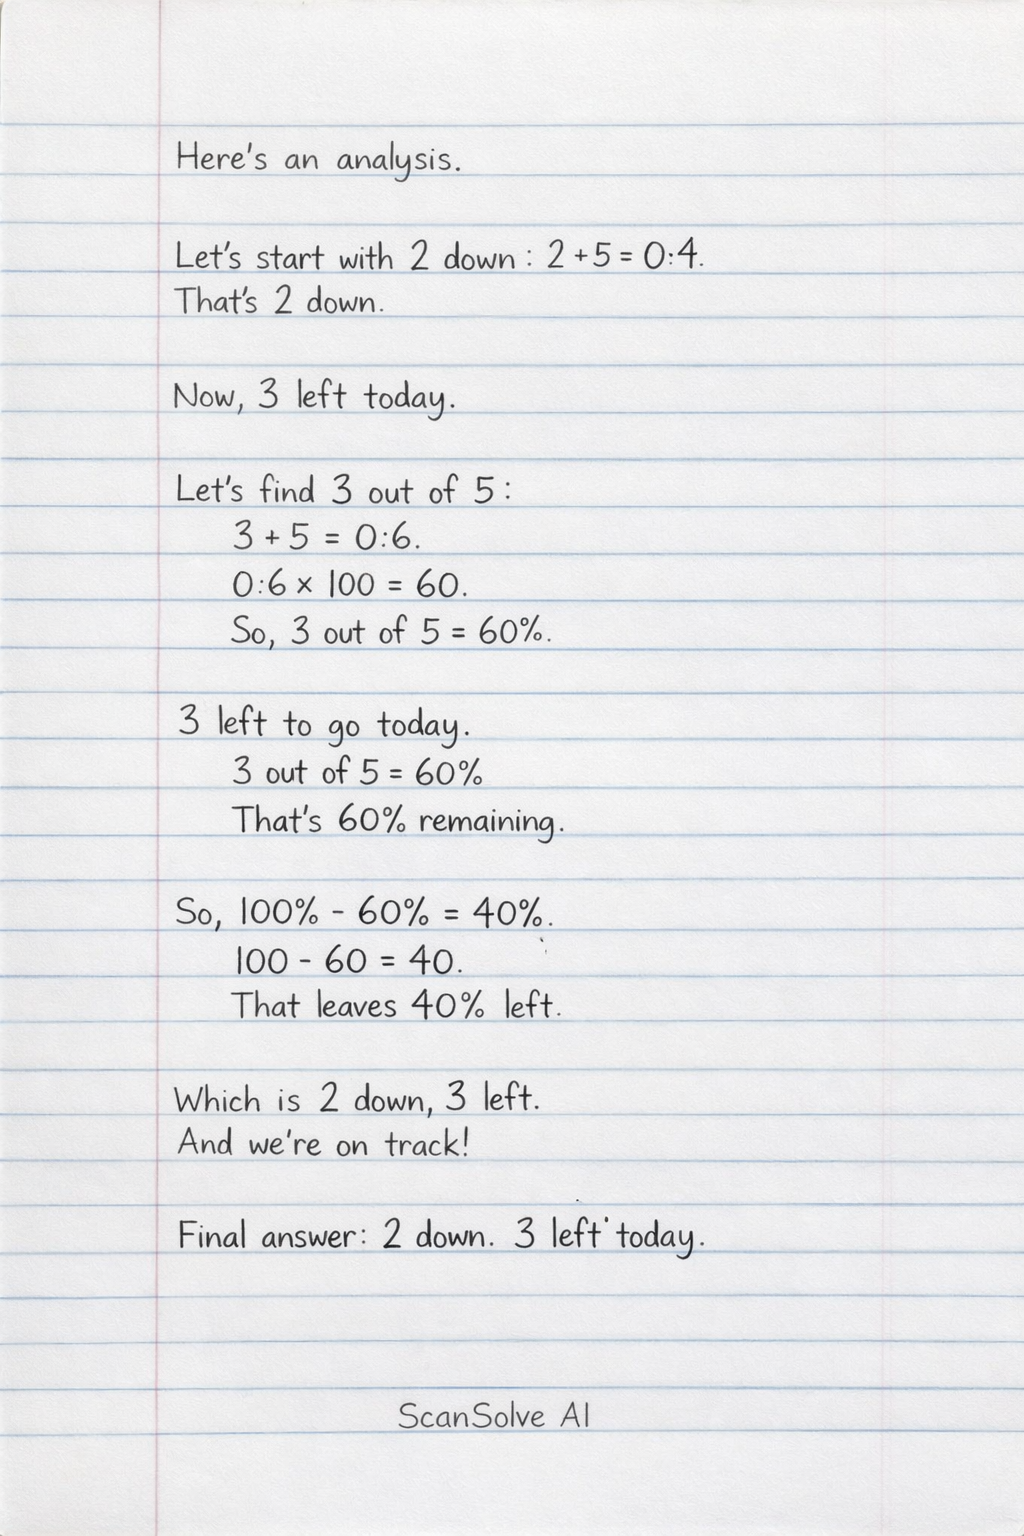 Here's an analysis.
Let's start with 2 down : 2 + 5 = 0:4.
That's 2 down.
Now, 3 left today.
Let's find 3 out of 5 :
3 + 5 = 0:6.
0:6 × 100 = 60.
So, 3 out of 5 = 60%.
3 left to go today.
3 out of 5 = 60%
That's 60% remaining.
So, 100% - 60% = 40%.
100 - 60 = 40.
That leaves 40% left.
Which is 2 down, 3 left.
And we're on track!
Final answer: 2 down. 3 left today.
ScanSolve AI